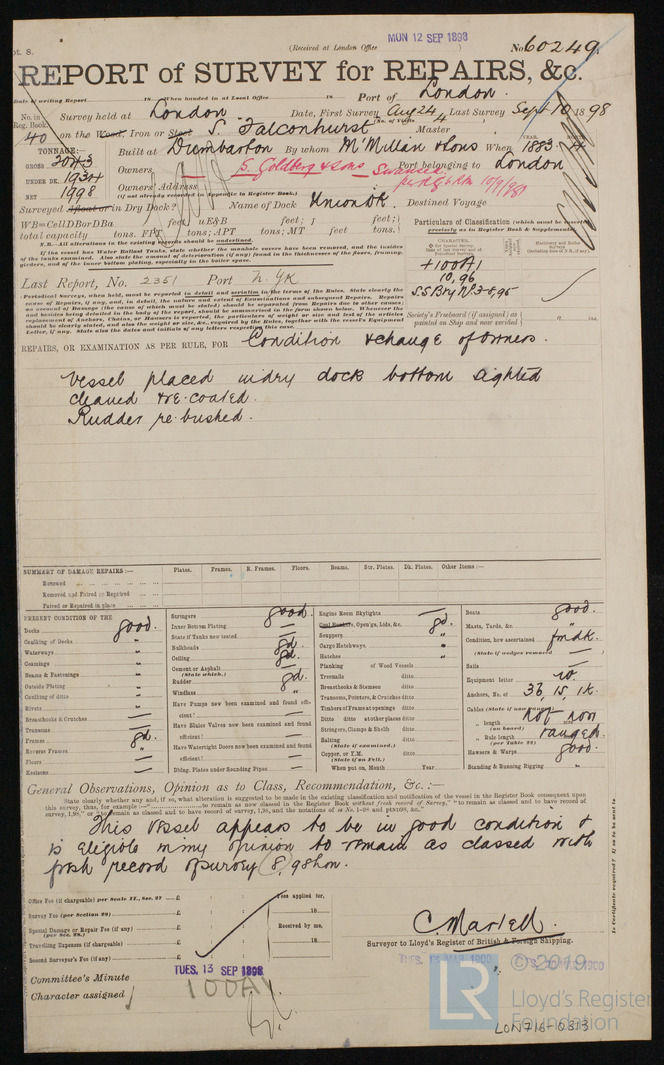 pt. 8.
(Received at London Office MON 12 SEP 1898 )
No. 60249.
REPORT of SURVEY for REPAIRS, &c.
Date of writing Report 18 When handed in at Local Office 18 Port of London.
No. in Reg. Book. Survey held at London Date, First Survey Aug 24 Last Survey Sept 10 1898
(No. of Visits 4)
40 on the Wood, Iron or Steel S. Falconhurst Master
TONNAGE:— Built at Dumbarton By whom McMillan & Sons When 1883. 4
YEAR. MONTH.
GROSS 2043
UNDER DK. 1934 Owners S. Goldberg & Sons Swansea Port belonging to London
NET 1998 Owners' Address
(if not already recorded in Appendix to Register Book.)
10/9/98
Surveyed Afloat or in Dry Dock? Name of Dock Union Dk. Destined Voyage
WB=CellDBorDBa feet; uE&B feet; f feet;
total capacity tons. FPT tons; APT tons; MT feet tons.
N.B.—All alterations in the existing records should be underlined.
If the vessel has Water Ballast Tanks, state whether the manhole covers have been removed, and the insides of the tanks examined. Also state the amount of deterioration (if any) found in the thicknesses of the floors, framing, girders, and of the inner bottom plating, especially in the boiler space.
Particulars of Classification (which must be inserted precisely as in Register Book & Supplement).
CHARACTER.
+100A1
10,96
S.S Bry No.3-8,95
Last Report, No. 2351 Port N. Yk
(Periodical Surveys, when held, must be reported in detail and seriatim in the terms of the Rules. State clearly the cause of Repairs, if any, and, in detail, the nature and extent of Examinations and subsequent Repairs. Repairs on account of Damage (the cause of which must be stated) should be separated from Repairs due to other causes; and besides being detailed in the body of the report, should be summarized in the form shown below. Whenever the replacement of Anchors, Chains, or Hawsers is reported, the particulars of weight or size and test of the articles should be clearly stated, and also the weight or size, &c., required by the Rules, together with the vessel's Equipment Letter, if any. State also the dates and initials of any letters respecting this case.
Society's Freeboard (if assigned) as painted on Ship and now verified
ft. ins.
REPAIRS, OR EXAMINATION AS PER RULE, FOR Condition & change of owners.
Vessel placed in dry dock bottom sighted
cleaned & re-coated.
Rudder re-bushed.
SUMMARY OF DAMAGE REPAIRS:— Plates. Frames. R. Frames. Floors. Beams. Str. Plates. Dk. Plates. Other Items:—
Renewed
Removed and Faired or Repaired
Faired or Repaired in place
PRESENT CONDITION OF THE
Decks good.
Caulking of Decks "
Waterways "
Coamings "
Beams & Fastenings "
Outside Plating "
Caulking of ditto "
Rivets "
Breasthooks & Crutches —
Transoms —
Frames gd.
Reverse Frames "
Floors —
Keelsons —
Stringers good.
Inner Bottom Plating —
State if Tanks now tested —
Bulkheads gd.
Ceiling gd.
Cement or Asphalt —
(State which.)
Rudder gd.
Windlass "
Have Pumps now been examined and found efficient? —
Have Sluice Valves now been examined and found efficient? —
Have Watertight Doors now been examined and found efficient? —
Dblng. Plates under Sounding Pipes —
Engine Room Skylights —
Coal Bunkers, Open'gs, Lids, &c. gd.
Scuppers "
Cargo Hatchways "
Hatches "
Planking of Wood Vessels
Treenails ditto
Breasthooks & Stemson ditto
Transoms, Pointers, & Crutches ditto
Timbers of Frame at openings ditto
Ditto ditto at other places ditto
Stringers, Clamps & Shelfs ditto
Salting ditto
(State if examined.)
Copper, or Y.M. ditto
(State if on Felt.)
When put on, Month Year
Boats good.
Masts, Yards, &c. "
Condition, how ascertained fm dk.
(State if wedges removed —)
Sails —
Equipment letter w.
Anchors, No. of 3B, 1S, 1K.
Cables (State if now ranged) not now
„ length ranged.
(on board)
„ Rule length
(per Table 22)
Hawsers & Warps good.
Standing & Running Rigging "
General Observations, Opinion as to Class, Recommendation, &c.:—
State clearly whether any and, if so, what alteration is suggested to be made in the existing classification and notification of the vessel in the Register Book consequent upon this survey, thus, for example:—" to remain as now classed in the Register Book without fresh record of Survey," "to remain as classed and to have record of survey, 1,98," or "to remain as classed and to have record of survey, 1,98, and the notations of ss No. 1-98 and ptND98, &c."
This vessel appears to be in good condition &
is eligible in my opinion to remain as classed with
fresh record of survey (8,98 Lon.
Office Fee (if chargeable) per Scale II., Sec. 27 £ : : Fees applied for,
Survey Fee (per Section 29) £ : : 18
Special Damage or Repair Fee (if any) £ : : Received by me,
(per Sec. 28.)
Travelling Expenses (if chargeable) £ : : 18
Second Surveyor's Fee (if any) £ : :
C. Martell.
Surveyor to Lloyd's Register of British & Foreign Shipping.
Committee's Minute TUES. 13 SEP 1898
Character assigned 100A1
© 2019
LR
Lloyd's Register
Foundation
LON716-0313